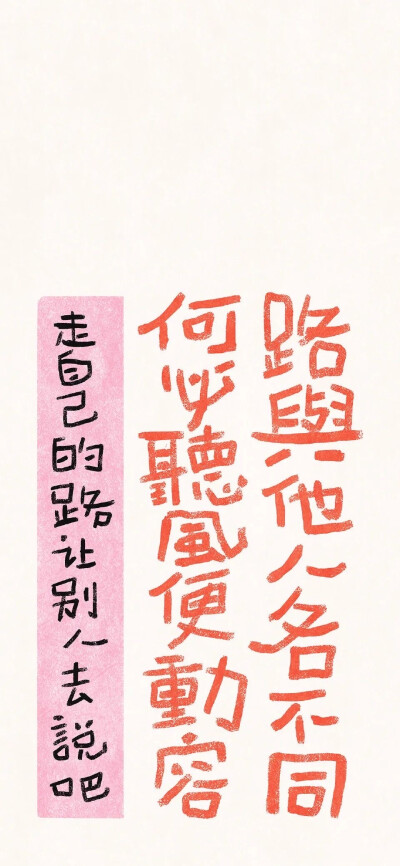 路與他人各不同
何必聽風便動容
走自己的路让别人去説吧